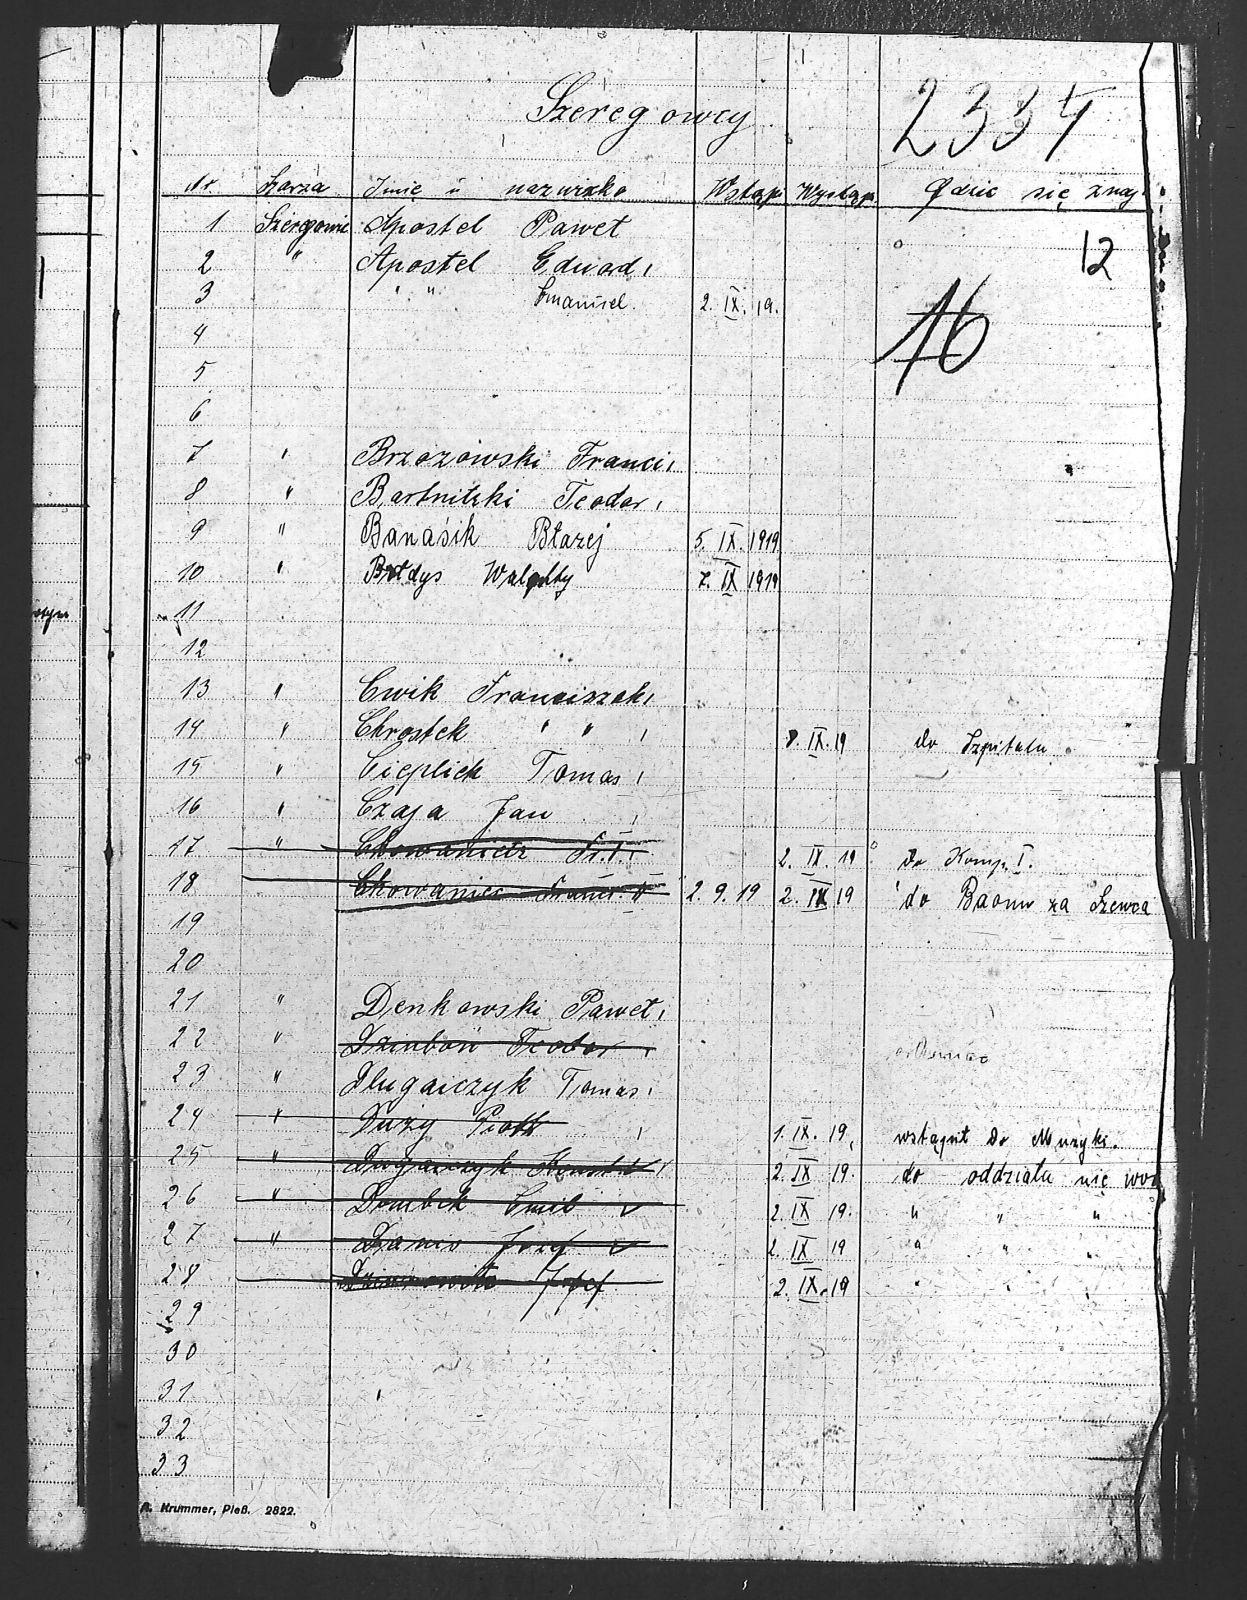 Szeregowcy 2334
Nr Szarza Imię i nazwisko Wstąp Wystąp. Gdzie się znaj
12
16
1 Szeregowiec Apostel Paweł
2 " Apostel Edward
3 " " Emanuel. 2. IX. 19.
4
5
6
7 " Brzozowski Franci
8 " Bartnitzki Teodor
9 " Banaśik Błazej 5. IX. 1919
10 " 7. IX 1919
11
12
13 " Cwik Franciszek
14 " Chrostek " " IX. 19 do Szpitalu
15 " Cieplick Tomas
16 " Czaja Jan
17 " Chowaniec Fr. I. 2. IX. 19 do Komp. I.
18 Chowaniec Franc. II 2. 9. 19 2. IX 19 do Baonu za Szewca
19
20
21 " Denkowski Paweł
22 " Teodor
23 " Dlugaiczyk Tomas
24 " Duzy Piotr 1. IX. 19. wstąpił do Muzyki.
25 " Dlugaiczyk Konst. 2. IX 19. do oddziału nie
26 " Dombek Emil 2. IX 19. " " "
27 " Józef 2. IX 19 " " "
28 Józef 2. IX. 19 " " "
29
30
31
32
33
R. Krummer, Pleß. 2822.